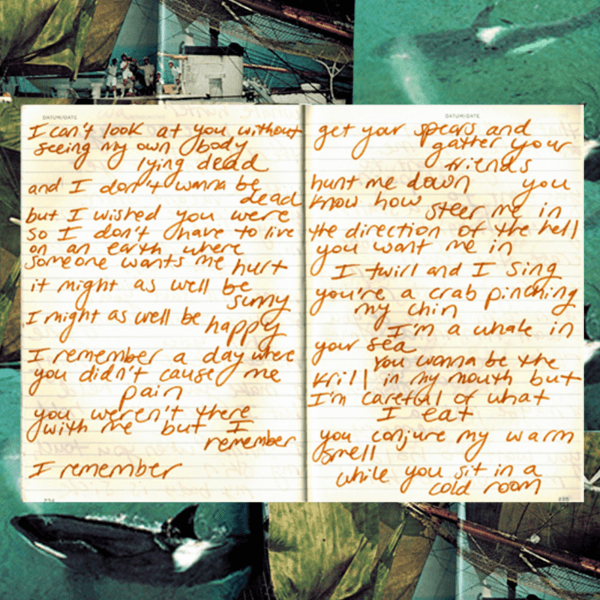 DATUM/DATE
I can't look at you without
seeing my own body
lying dead
and I don't wanna be
dead
but I wished you were
so I don't have to live
on an earth where
someone wants me hurt
it might as well be
sunny
I might as well be happy
I remember a day where
you didn't cause me
pain
you weren't there
with me but I
remember
I remember
234
DATUM/DATE
get your spears and
gatter your
friends
hunt me down you
know how
steer me in
the direction of the hell
you want me in
I twirl and I sing
you're a crab pinching
my chin
I'm a whale in
your sea
You wanna be the
krill in my mouth but
I'm careful of what
I eat
you conjure my warm
smell
while you sit in a
cold room
235